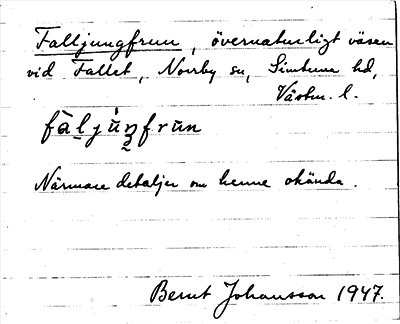 Falljungfrun, övernaturligt väsen
vid Fallet, Norrby sn, Simtuna hd,
Västm. l.
fàljúŋfrun
Närmare detaljer om henne okända.
Bernt Johansson 1947.